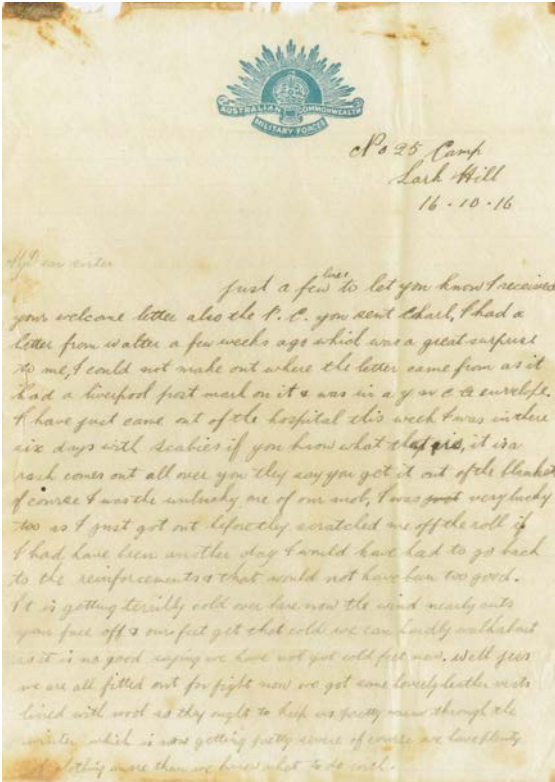 AUSTRALIAN COMMONWEALTH
MILITARY FORCES
No 25 Camp
Lark Hill
16 . 10 . 16
My Dear sister
Just a few lines to let you know I received
your welcome letter also the P. C. you sent Charl, I had a
letter from walter a few weeks ago which was a great surprise
to me, I could not make out where the letter came from as it
had a liverpool post mark on it & was in a y m c a envelope.
I have just came out of the hospital this week I was in there
six days with scabies if you know what that are, it is a
rash comes out all over you they say you get it out of the blanket
of course I was the unlucky one of our mob, I was just very lucky
too as I just got out before they scratched me off the roll if
I had have been another day I would have had to go back
to the reinforcements & that would not have been too good.
It is getting terribly cold over here now the wind nearly cuts
your face off & our feet get that cold we can hardly walk about
as it is no good saying we have not got cold feet now. Well
we are all fitted out for fight now we got some lovely leather vests
lined with wool so they ought to keep us pretty warm through the
winter which is now getting pretty severe of course we have plenty
of clothing more than we know what to do with.